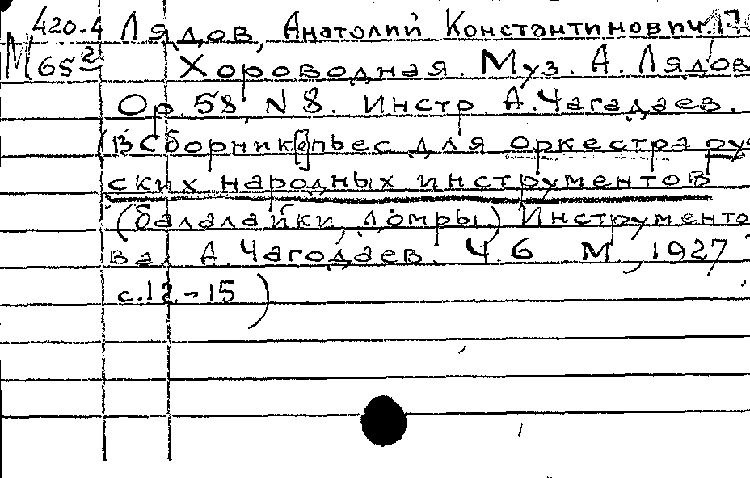 420-4 Лядов, Анатолий Константинович.
М 65² Хороводная. Муз. А. Лядов
Ор. 58, N 8. Инстр А. Чагадаев.
(В Сборник[е] пьес для оркестра рус
ских народных инструментов
(балалайки, домры) Инструменто
вал А. Чагодаев. Ч. 6. М., 1927
с. 12-15)